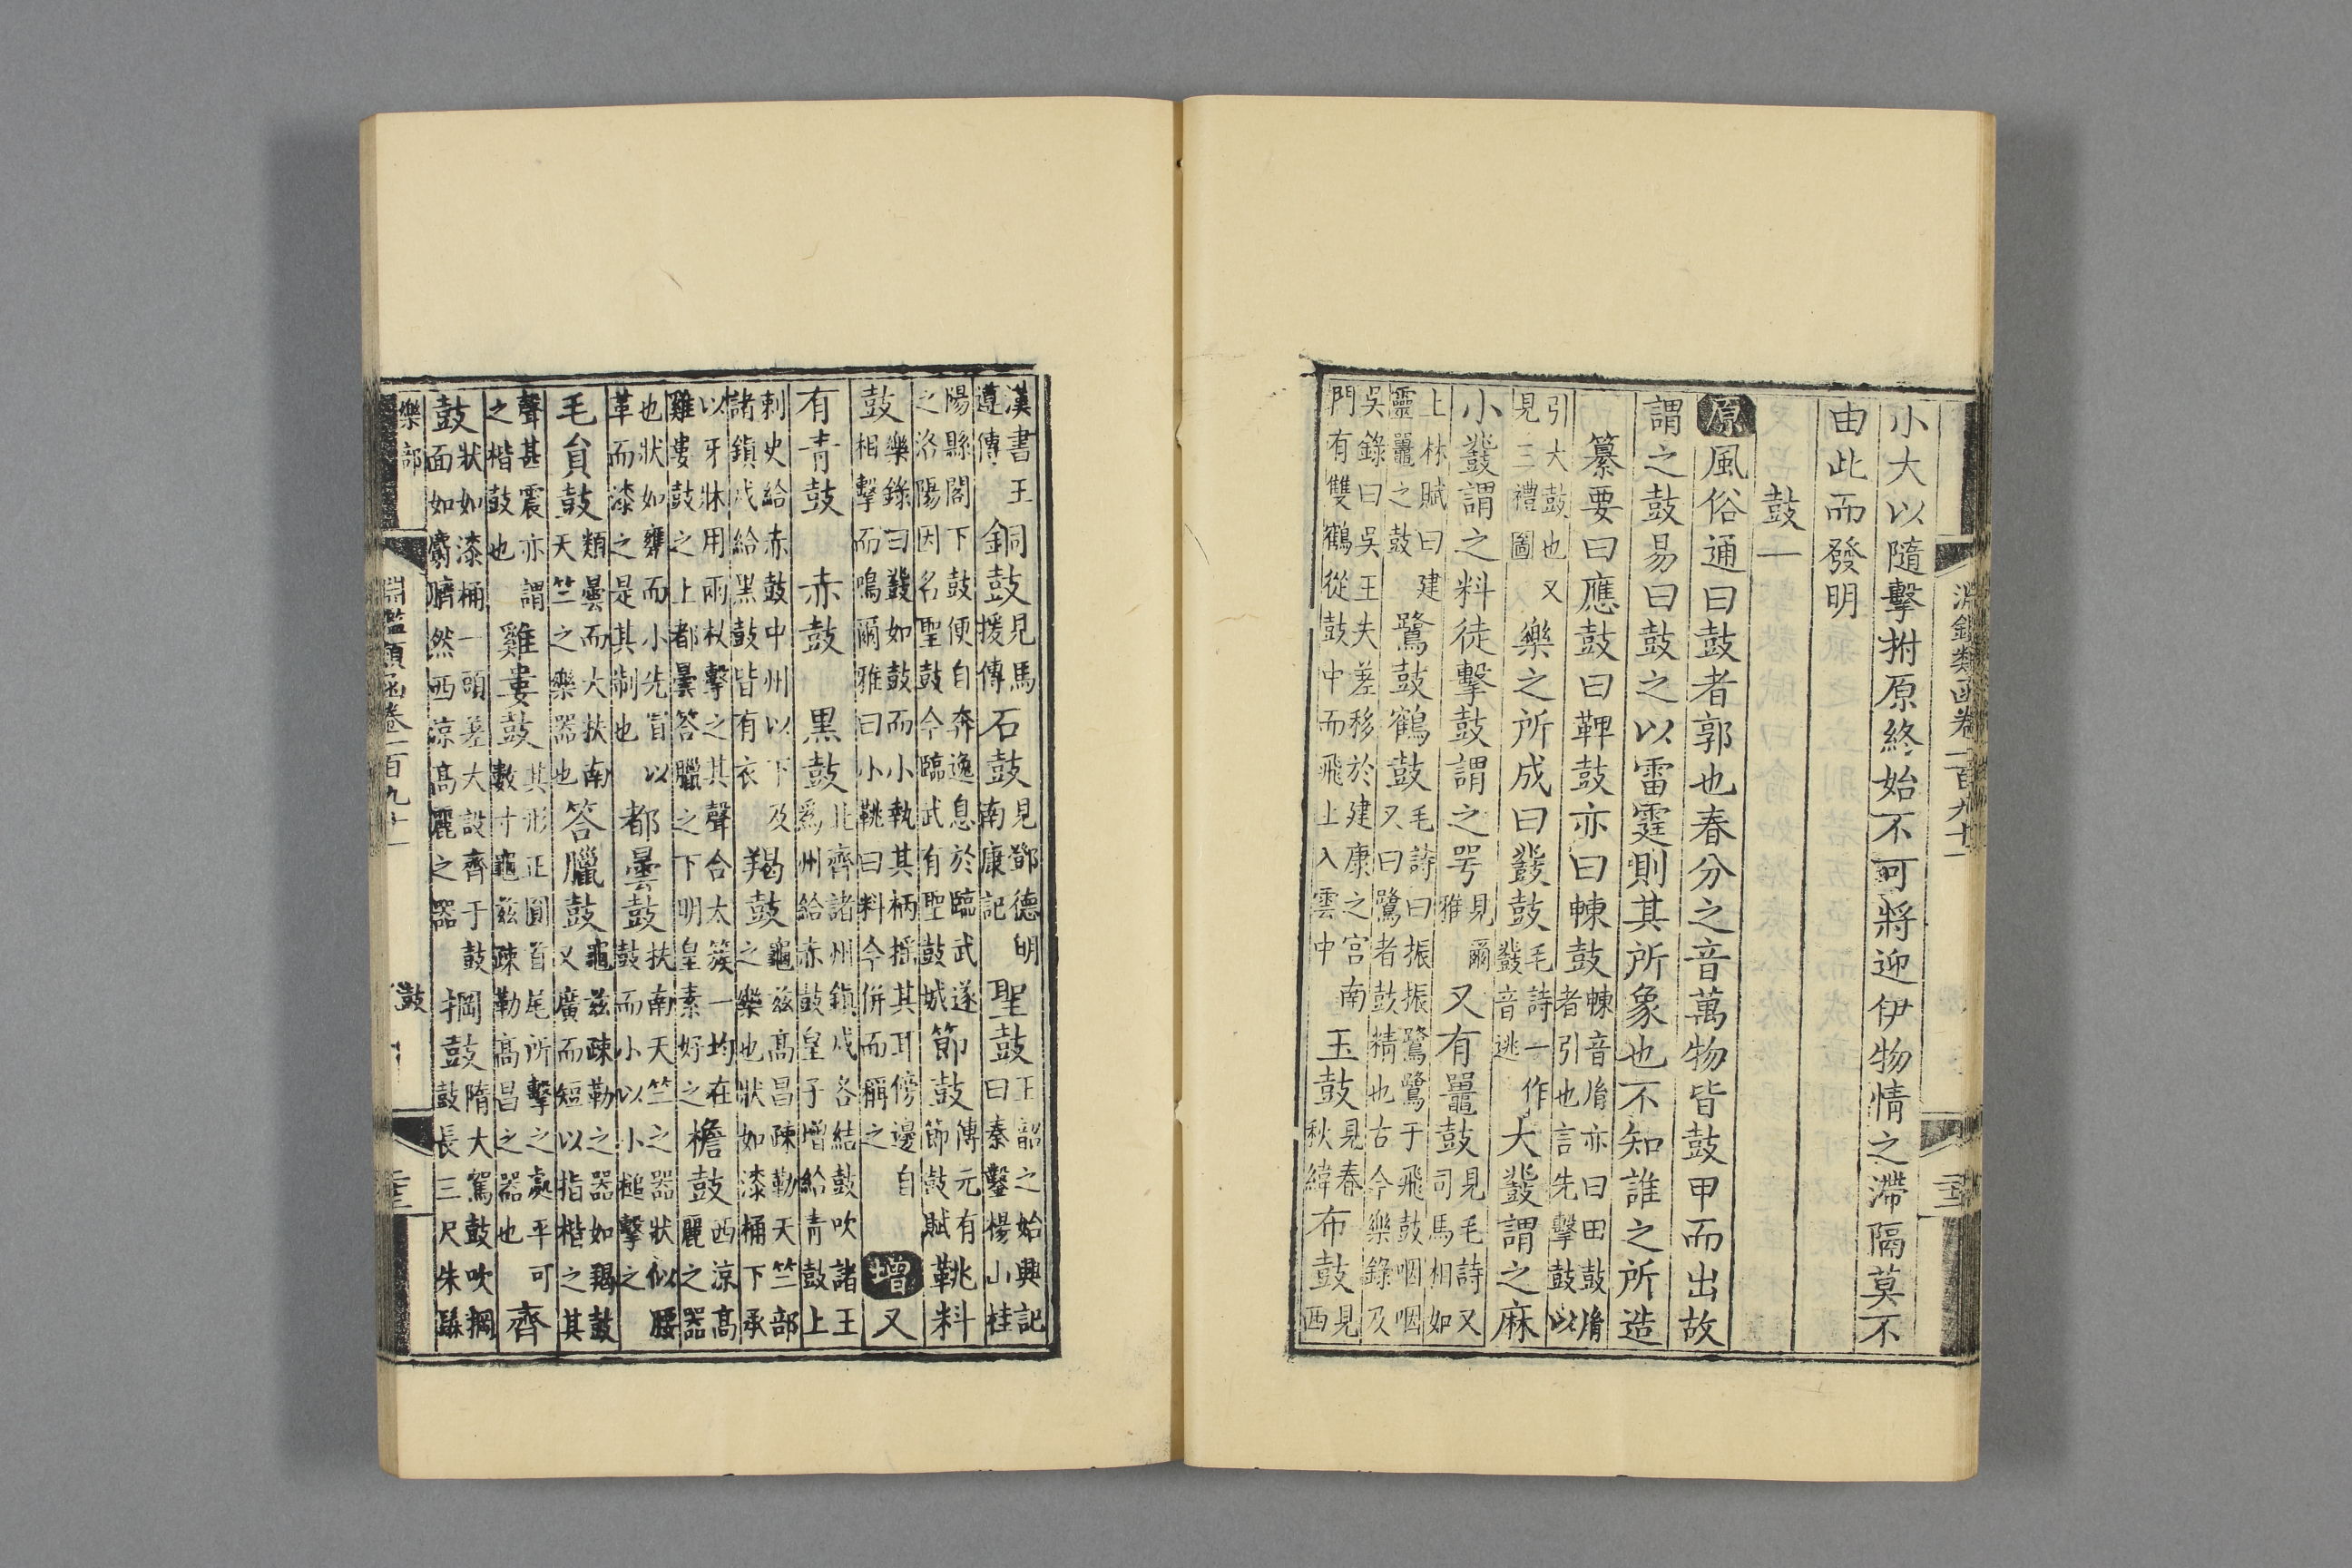 淵鑑類函卷一百九十一
小大以隨擊拊原終始不可將迎伊物情之滯隔莫不
由此而發明
鼓一
原風俗通曰鼓者郭也春分之音萬物皆鼓甲而出故
謂之鼓易曰鼓之以雷霆則其所象也不知誰之所造
纂要曰應鼓曰鞞鼓亦曰㯥鼓㯥音胤亦曰田鼓胤者引也言先擊鼓以
引大鼓也又見三禮圖樂之所成曰鼗鼓毛詩一作鼗音逃大鼗謂之麻
小鼗謂之料徒擊鼓謂之咢見爾雅又有鼉鼓見毛詩又司馬相如
上林賦曰建靈鼉之鼓鷺鼓鶴鼓毛詩曰振振鷺鷺于飛鼓咽咽又曰鷺者鼓精也古今樂錄及
吳錄曰吳王夫差移於建康之宮南門有雙鶴從鼓中而飛上入雲中玉鼓見春秋緯布鼓見西
漢書王遵傳銅鼓見馬援傳石鼓見鄧德明南康記聖鼓王韶之始興記曰秦鑿楊山桂
陽縣閣下鼓便自奔逸息於臨武遂之洛陽因名聖鼓今臨武有聖鼓城節鼓傳元有節鼓賦鞉料
鼓樂錄曰鼗如鼓而小執其柄搖其耳傍邊自相擊而鳴爾雅曰小鞉曰料今併而稱之增又
有青鼓赤鼓黑鼓北齊諸州鎮戍各結鼓吹諸王爲州給赤鼓皇子增給青鼓上
刺史給赤鼓中州以下及諸鎮戍給黑鼓皆有衣羯鼓龜兹高昌疎勒天竺部之樂也狀如漆桶下承
以牙牀用兩杖擊之其聲合太簇一均在雞婁鼓之上都曇答臘之下明皇素好之檐鼓西涼高麗之器
也狀如甕而小先冒以革而漆之是其制也都曇鼓扶南天竺之器狀似腰鼓而小以小槌擊之
毛負鼓類曇而大扶南天竺之樂器也答臘鼓龜兹疎勒之器如羯鼓又廣而短以指楷之其
聲甚震亦謂之楷鼓也雞婁鼓其形正圓首尾所擊之處平可數寸龜兹疎勒高昌之器也齊
鼓狀如漆桶一頭差大設齊于鼓面如麝臍然西涼高麗之器掆鼓隋大駕鼓吹掆鼓長三尺朱髹
樂部
淵鑑類函卷一百九十一
鼓一